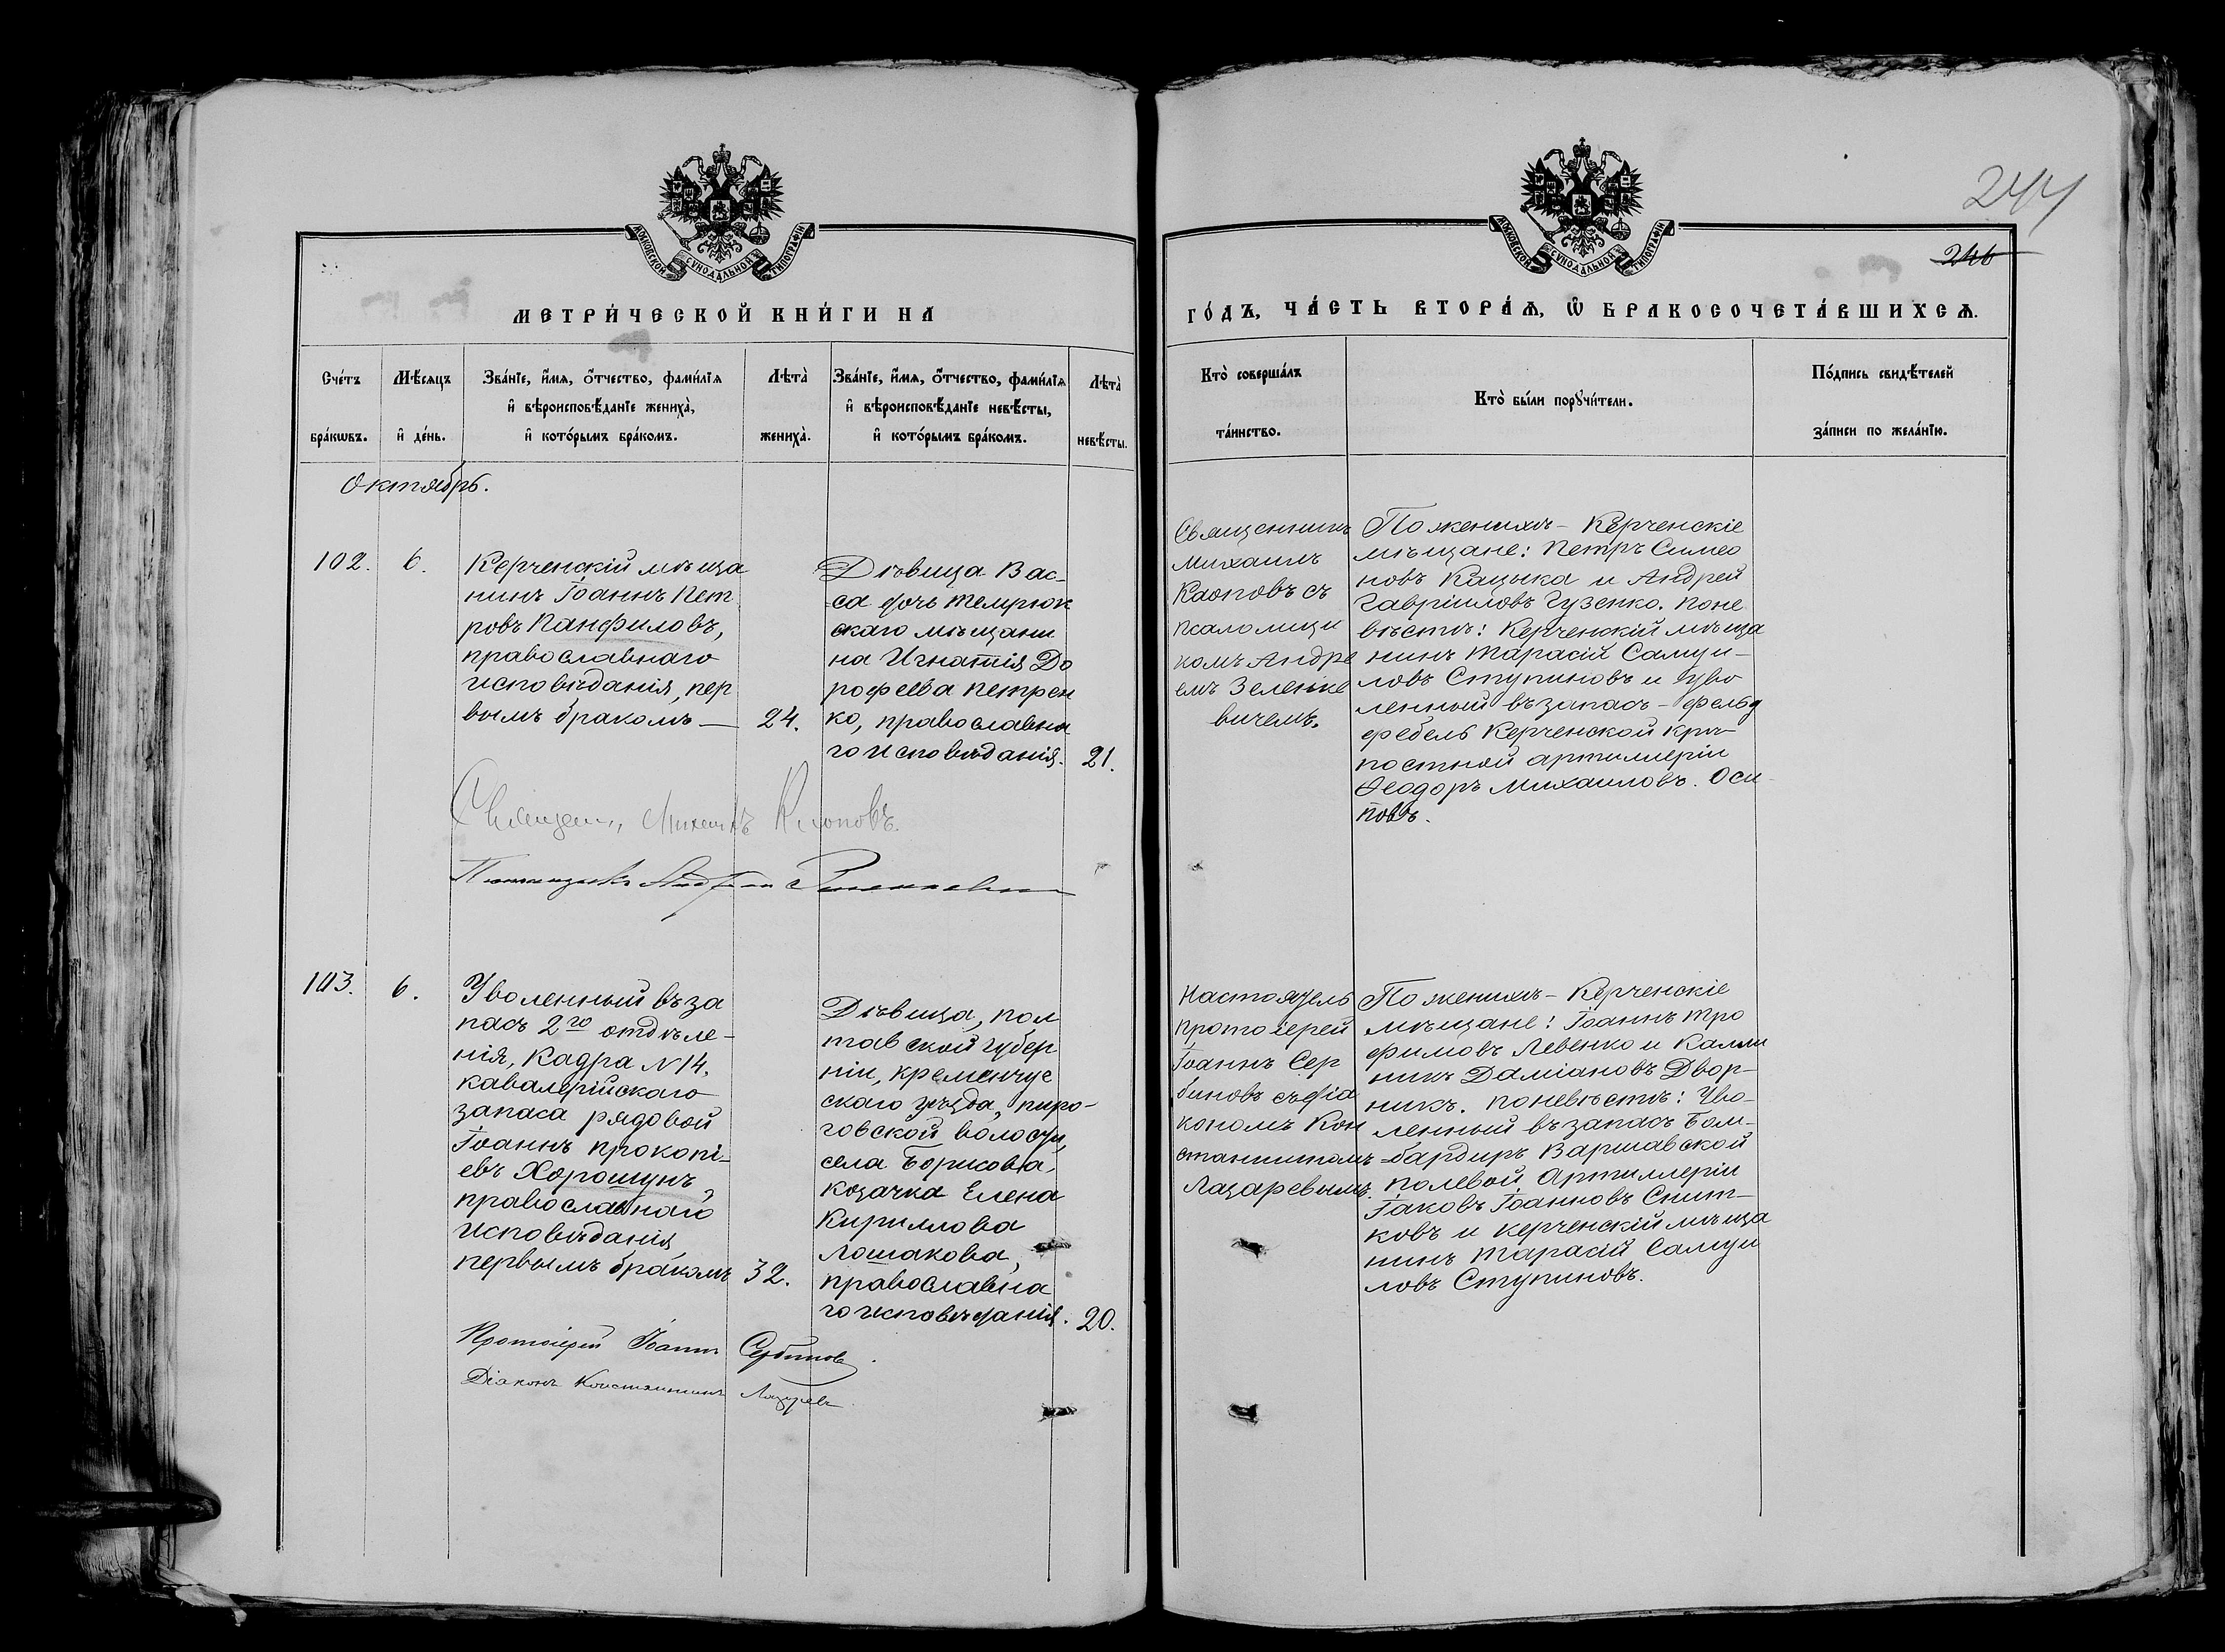 МОСКОВСКОЙ СУНОДАЛЬНОЙ ТИПОГРАФІИ
МЕТРИ́ЧЕСКОЙ КНИ́ГИ НА
Сче́тъ бра́кѡвъ.
Мѣ́сяцъ и҆ де́нь.
Зва́нїе, и҆́мя, ѻ҆́тчество, фами́лїя
и҆ вѣроисповѣ́данїе женихà,
и҆ кото́рымъ бра́комъ.
Лѣта̀ женихà.
Зва́нїе, и҆́мя, ѻ҆́тчество, фами́лїя
и҆ вѣроисповѣ́данїе невѣ́сты,
и҆ кото́рымъ бра́комъ.
Лѣта̀ невѣ́сты.
Октябрь.
102.
6.
Керченскій мѣща
нинъ Іоаннъ Пет
ровъ Панфиловъ,
православнаго
исповѣданія, пер
вымъ бракомъ —
24.
Дѣвица Вас-
са дочь темрюк
скаго мѣщани
на Игнатія До
рофеева Петрен
ко, православна
го исповѣданія.
21.
Михаилъ
103.
6.
Уволенный въ за
пасъ 2го отдѣле-
нія, Кадра N 14.
кавалерійскаго
запаса рядовой
Іоаннъ Прокопі-
евъ Хорошунъ,
православнаго
исповѣданія
первымъ бракомъ
32.
Дѣвица, пол
тавской губер
ніи, кременчуг
скаго уѣзда, пиро-
говской волости,
села Борисовка,
козачка Елена
Кириллова
Лошакова,
православна
го исповѣданія.
20.
Протоіерей Іоаннъ Сербиновъ.
Діаконъ Константинъ Лазаревъ
244
246
МОСКОВСКОЙ СУНОДАЛЬНОЙ ТИПОГРАФІИ
ГО́ДЪ, ЧА́СТЬ ВТОРА́Ѧ, Ѽ БРАКОСОЧЕТА́ВШИХСѦ.
Кто̀ соверша́лъ
та́инство.
Кто̀ бы́ли порꙋчи́тели.
По́дпись свидѣ́телей
за́писи по жела́нїю.
Священникъ
Михаилъ
псаломщи
комъ Андре
емъ Зеленке
вичемъ.
По женихѣ - Керченскіе
мѣщане: Петръ Симео
новъ Кацыка и Андрей
Гавріиловъ Гузенко. По не
вѣстѣ: Керченскій мѣща
нинъ Тарасій Самуи-
ловъ Ступиновъ и Уво
ленный въ запасъ - фельд
фебель Керченской крѣ-
постной артиллеріи
Ѳеодоръ Михаиловъ. Оси-
повъ.
Настоятель
протоіерей
Іоаннъ Сер
биновъ съ діа
кономъ Кон
стантиномъ
Лазаревымъ.
По женихѣ - Керченскіе
мѣщане: Іоаннъ Тро
фимовъ Левенко и Калли
никъ Даміановъ Двор-
никъ. По невѣстѣ: Уво-
ленный въ запасъ Бом-
бардиръ Варшавской
полевой Артиллеріи
Іаковъ Іоанновъ Снит-
ковъ и керченскій мѣща
нинъ Тарасій Самуи
ловъ Ступиновъ.